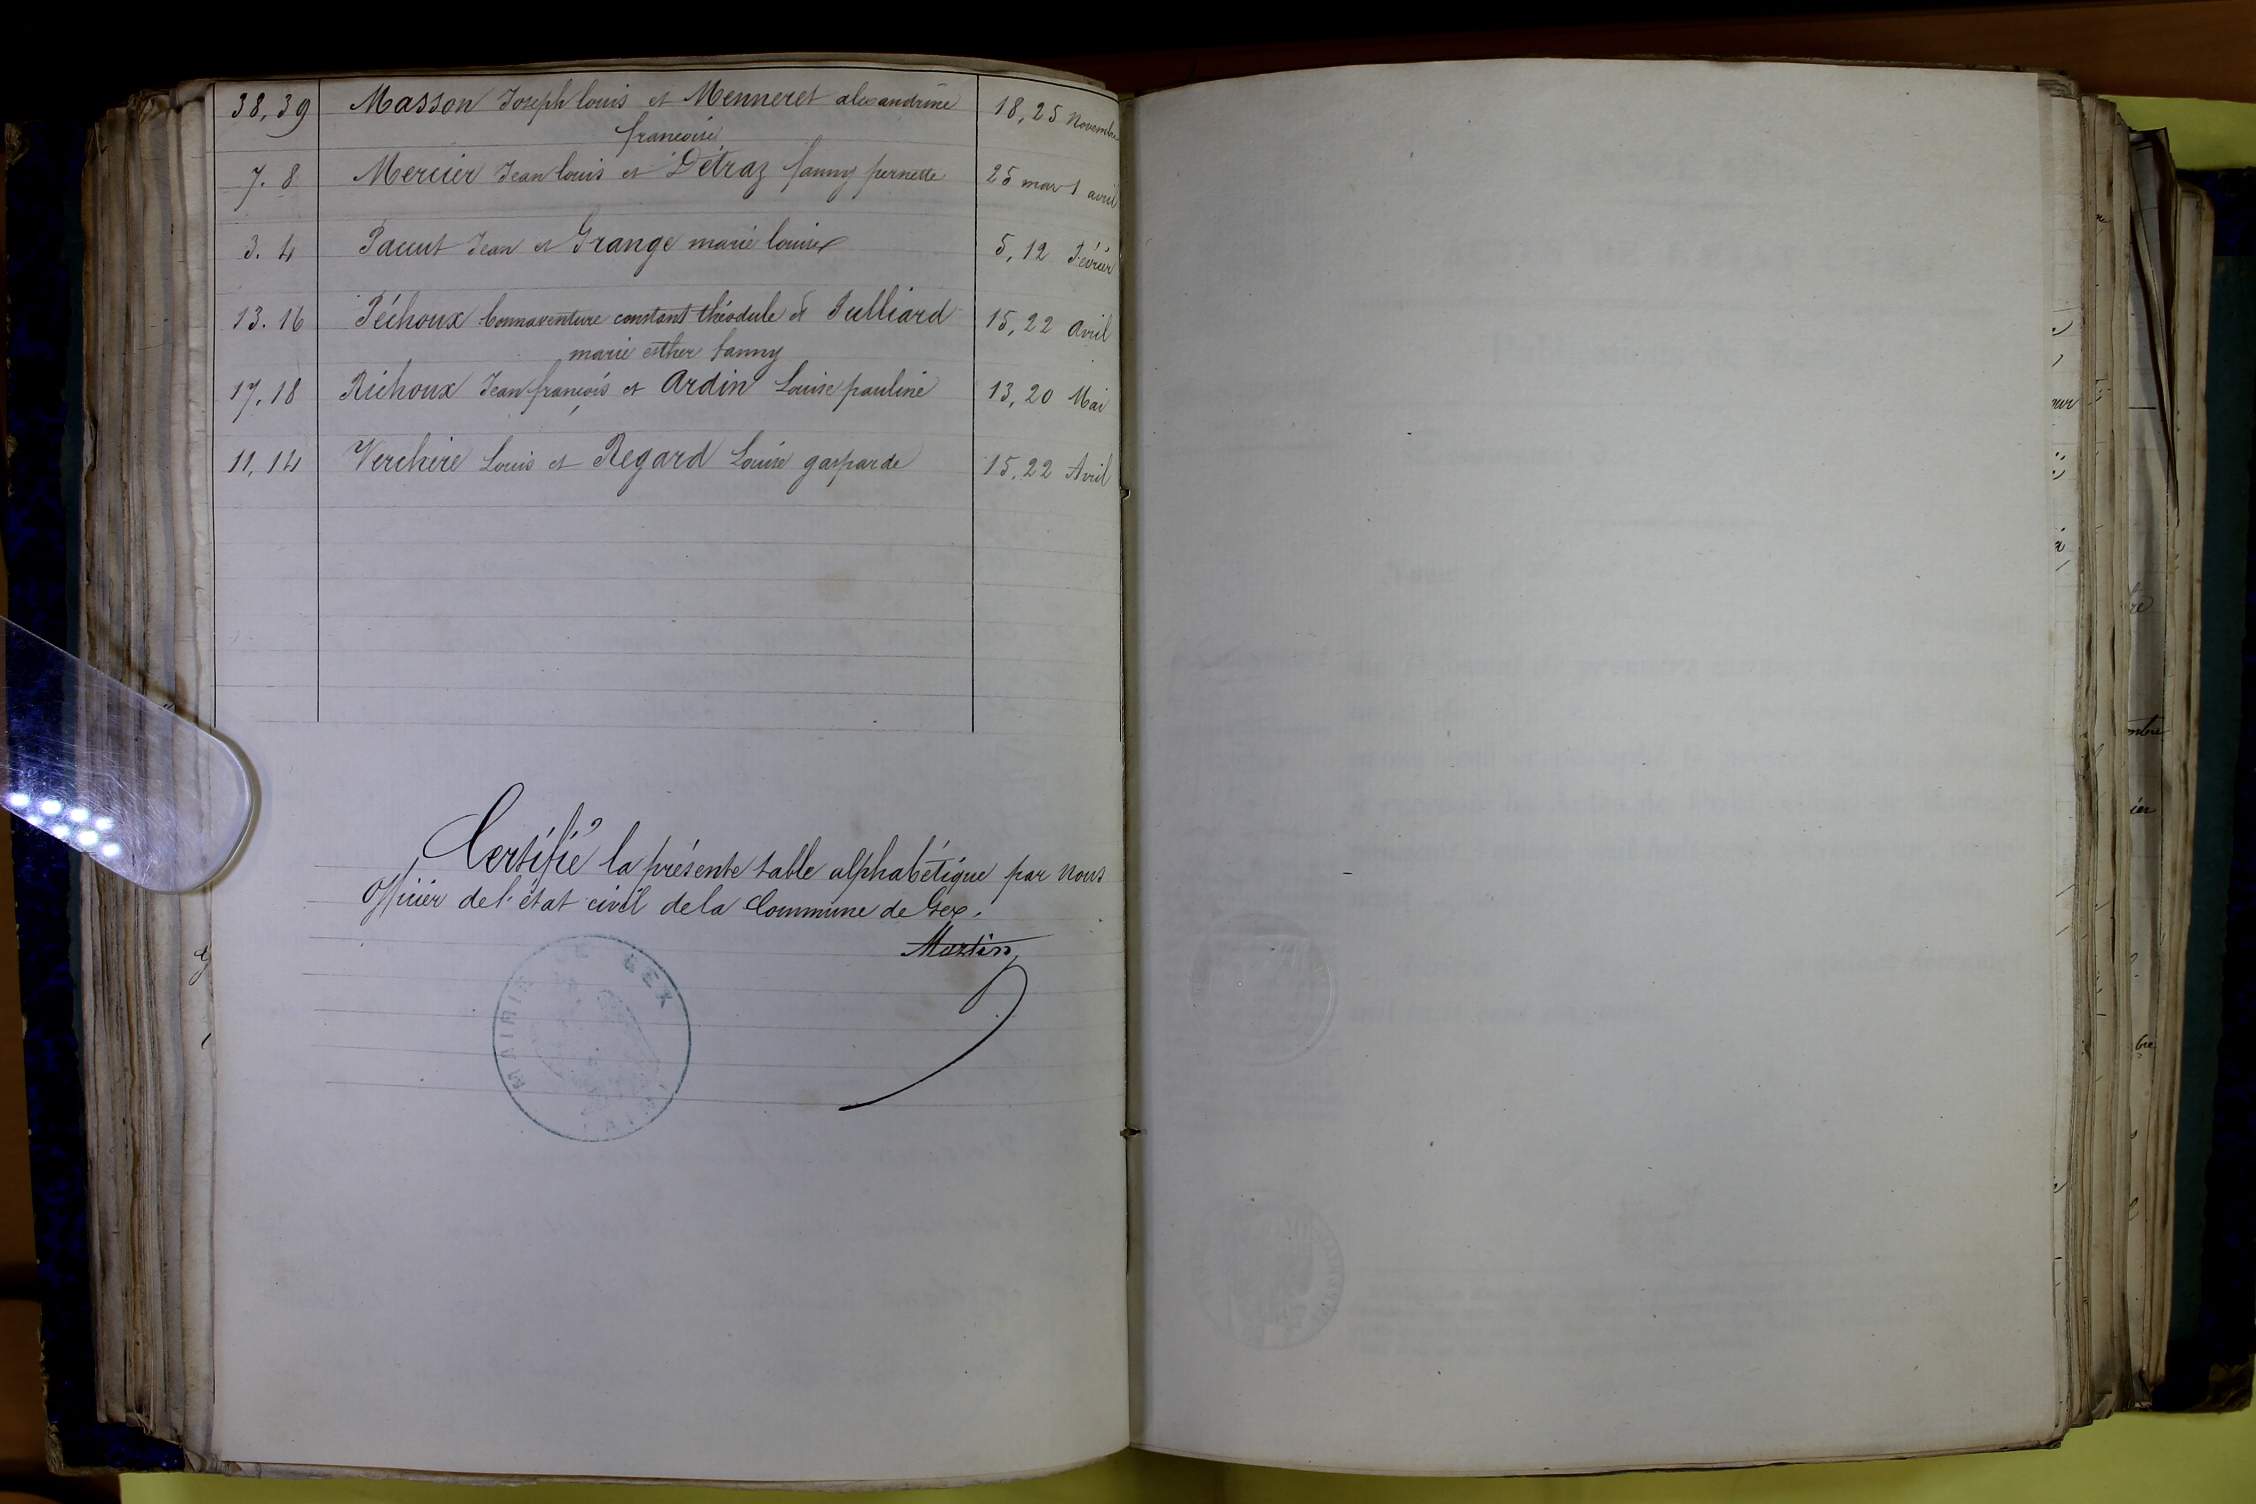 38, 39 Masson Joseph louis et Menneret alexandrine 18, 25 Novembre
francoise
7. 8 Mercier Jean louis et Détraz fanny pernette 25 mars 1 avril
3. 4 Pacut Jean et Grange marie louise 5, 12 Février
13. 16 Péchoux bonnaventure constant théodule et Julliard 15, 22 Avril
marie esther fanny
17, 18 Richoux Jean françois et Ardin Louise pauline 13, 20 Mai
11, 14 Verchère Louis et Regard Louise gasparde 15, 22 Avril
Certifié la présente table alphabétique par nous
Officier de l'état civil de la Commune de Gex.
Martin
MAIRIE DE GEX
(AIN)